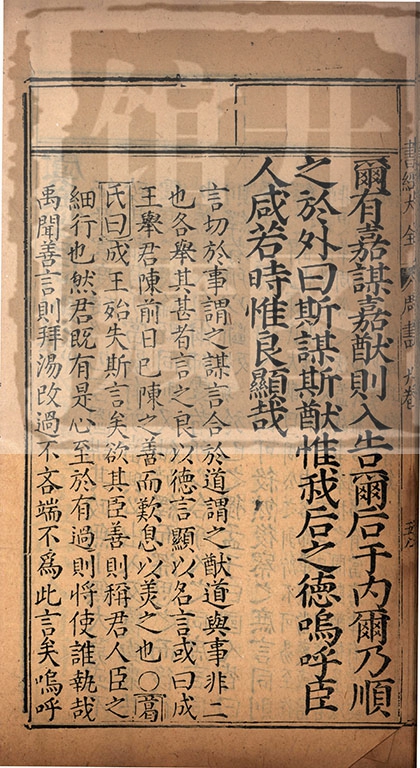 爾有嘉謀嘉猷則入告爾后于内爾乃順
之於外曰斯謀斯猷惟我后之德嗚呼臣
人咸若時惟良顯哉
言切於事謂之謀言合於道謂之猷道與事非二
也各舉其甚者言之良以德言顯以名言或曰成
王舉君陳前日已陳之善而歎息以美之也○葛
氏曰成王殆失斯言矣欲其臣善則稱君人臣之
細行也然君既有是心至於有過則將使誰執哉
禹聞善言則拜湯改過不吝端不爲此言矣嗚呼